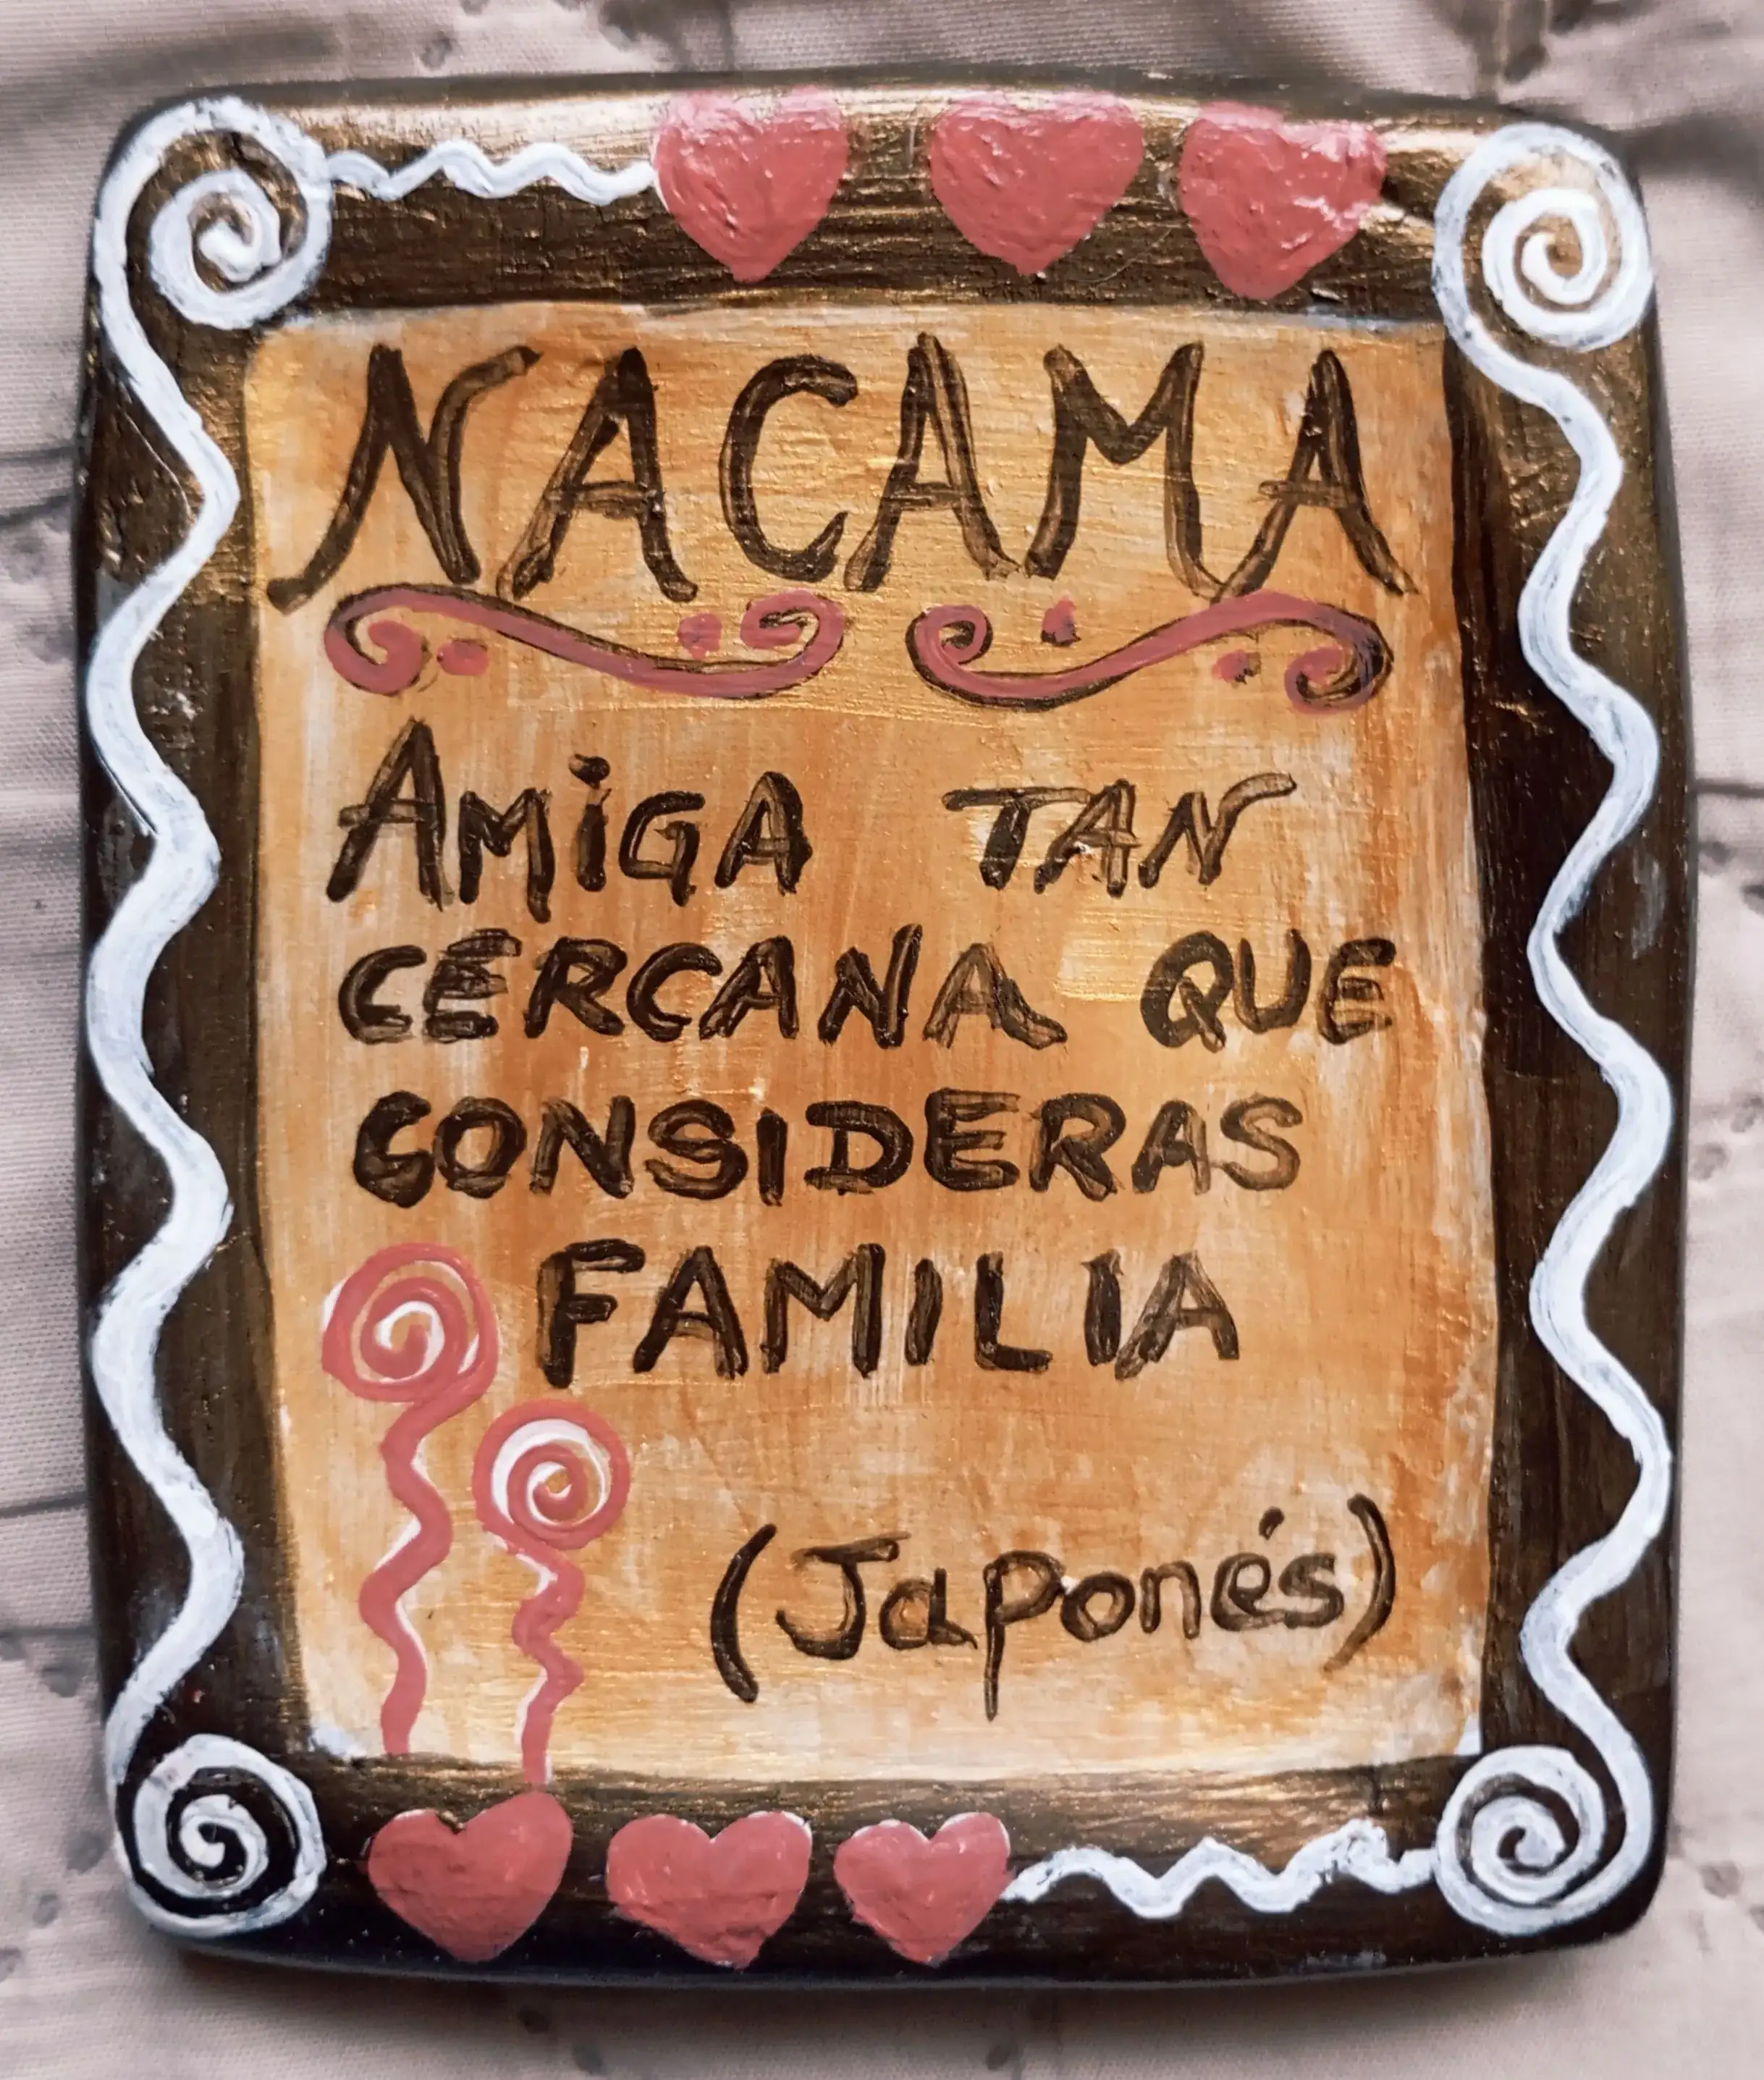 NACAMA
AMiGA TAN
CERCANA QUE
CONSIDERAS
FAMILIA
(Japonés)